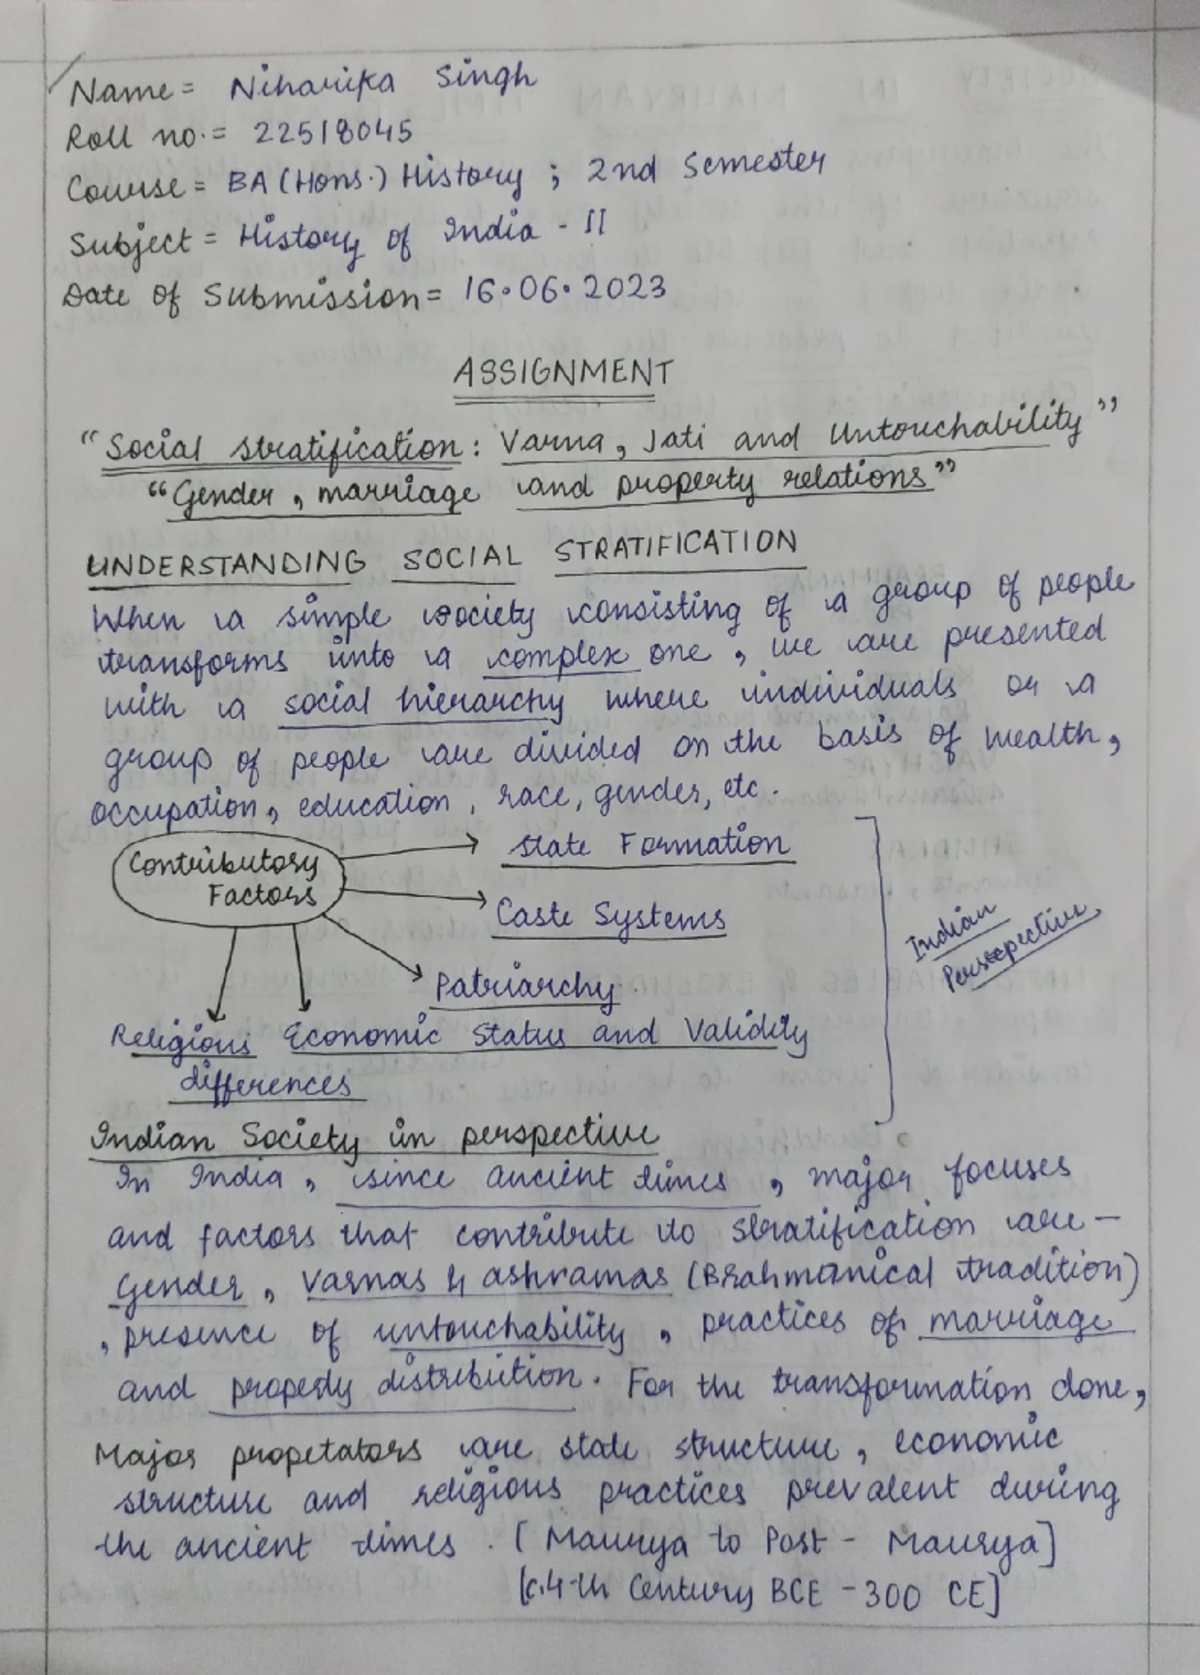 Name = Niharika Singh
Roll no. = 22518045
Course = BA (Hons.) History ; 2nd Semester
Subject = History of India - II
Date of Submission = 16.06.2023
ASSIGNMENT
"Social stratification : Varna, Jati and Untouchability"
"Gender, marriage and property relations"
UNDERSTANDING SOCIAL STRATIFICATION
When a simple society consisting of a group of people
transforms into a complex one, we are presented
with a social hierarchy where individuals or a
group of people are divided on the basis of wealth,
occupation, education, race, gender, etc.
Contributory
Factors
State Formation
Caste Systems
Patriarchy
Religious
differences
Economic Status and Validity
Indian
Perspective
Indian Society in perspective
In India, since ancient times, major focuses
and factors that contribute to stratification are –
Gender, Varnas & ashramas (Brahmanical tradition)
, presence of untouchability, practices of marriage
and property distribution. For the transformation done,
Major propetators are state structure, economic
structure and religious practices prevalent during
the ancient times. [Maurya to Post - Maurya]
[c.4th Century BCE - 300 CE]